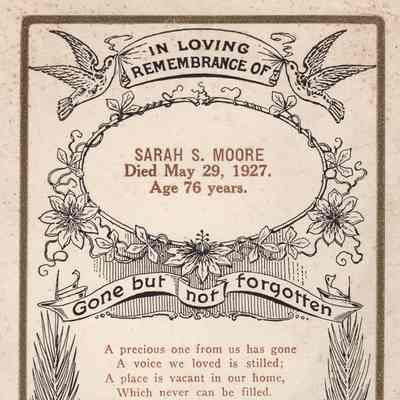 IN LOVING
REMEMBRANCE OF
SARAH S. MOORE
Died May 29, 1927.
Age 76 years.
Gone but not forgotten
A precious one from us has gone
A voice we loved is stilled;
A place is vacant in our home,
Which never can be filled.